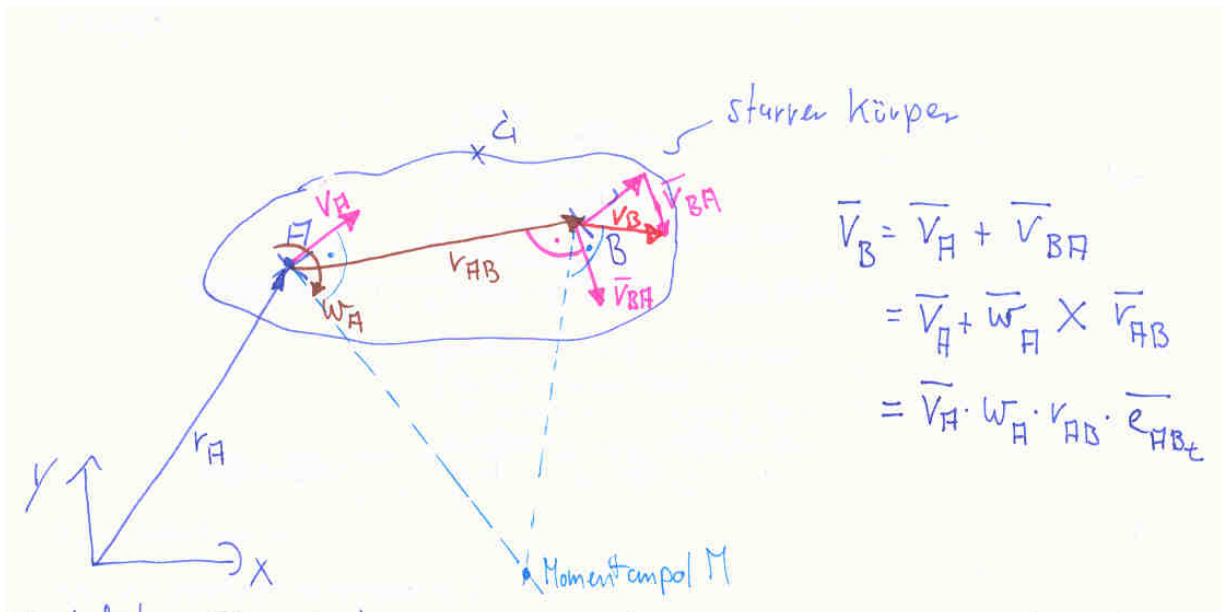 starrer Körper
G
V_A
A
W_A
r_AB
V_B
B
V̅_BA
V̅_BA
r_A
Y
X
Momentanpol M
V̅_B = V̅_A + V̅_BA
= V̅_A + W̅_A × r̅_AB
= V̅_A · W_A · r_AB · e̅_ABt